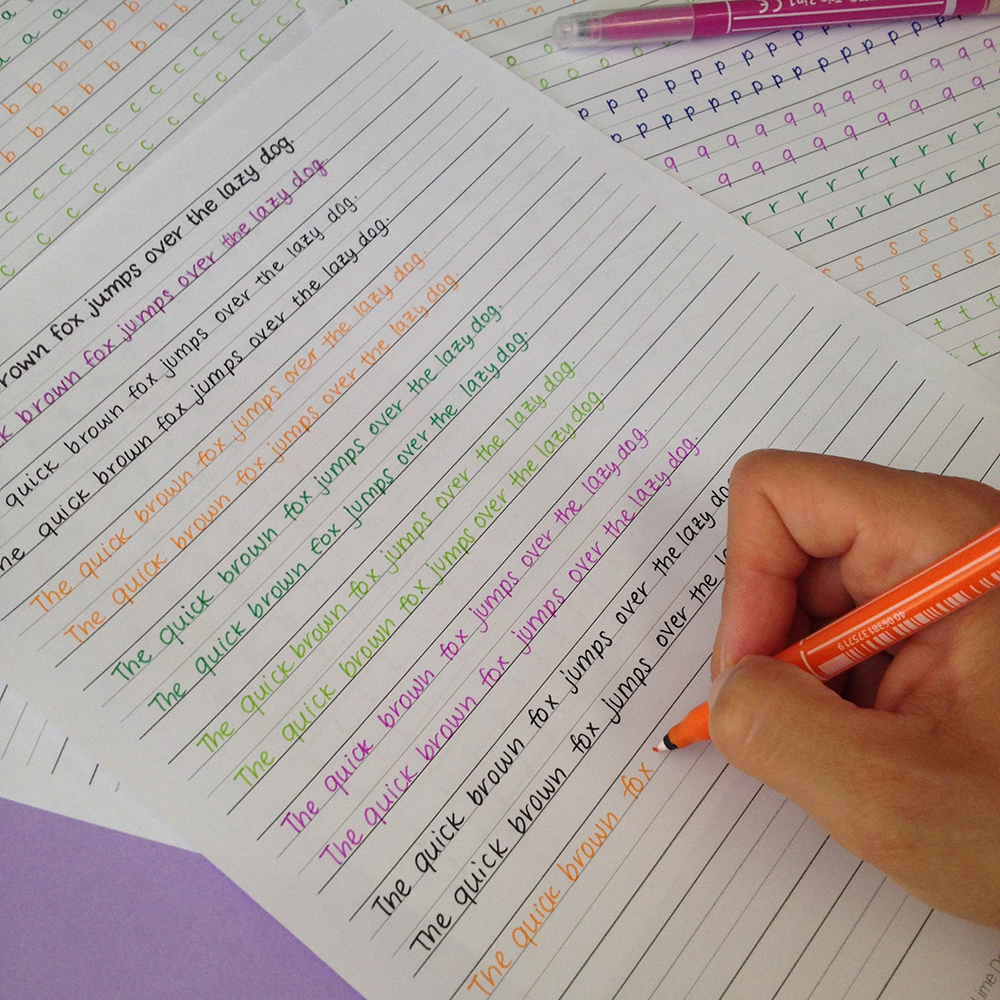 a
a
b b b b b
b b b b b
b b
c c c c c c
c c c c c c
c c c c
n n n
o o o o o
p p p p p p p p p p
p p p p p p p p p p p p
q q q q q q q q
q q q q q q q
r r r r r r
r r r r r
s s s s s s
s s s s s
t t t
t t
2in1 CE
brown fox jumps over the lazy dog
brown fox jumps over the lazy dog.
quick brown fox jumps over the lazy dog.
quick brown fox jumps over the lazy dog.
The quick brown fox jumps over the lazy dog.
The quick brown fox jumps over the lazy dog.
The quick brown fox jumps over the lazy dog.
The quick brown fox jumps over the lazy dog.
The quick brown fox jumps over the lazy dog.
The quick brown fox jumps over the lazy dog.
The quick brown fox jumps over the lazy dog.
The quick brown fox jumps over the lazy dog.
The quick brown fox jumps over the lazy
The quick brown fox jumps over the
The quick brown fox
4006381375719